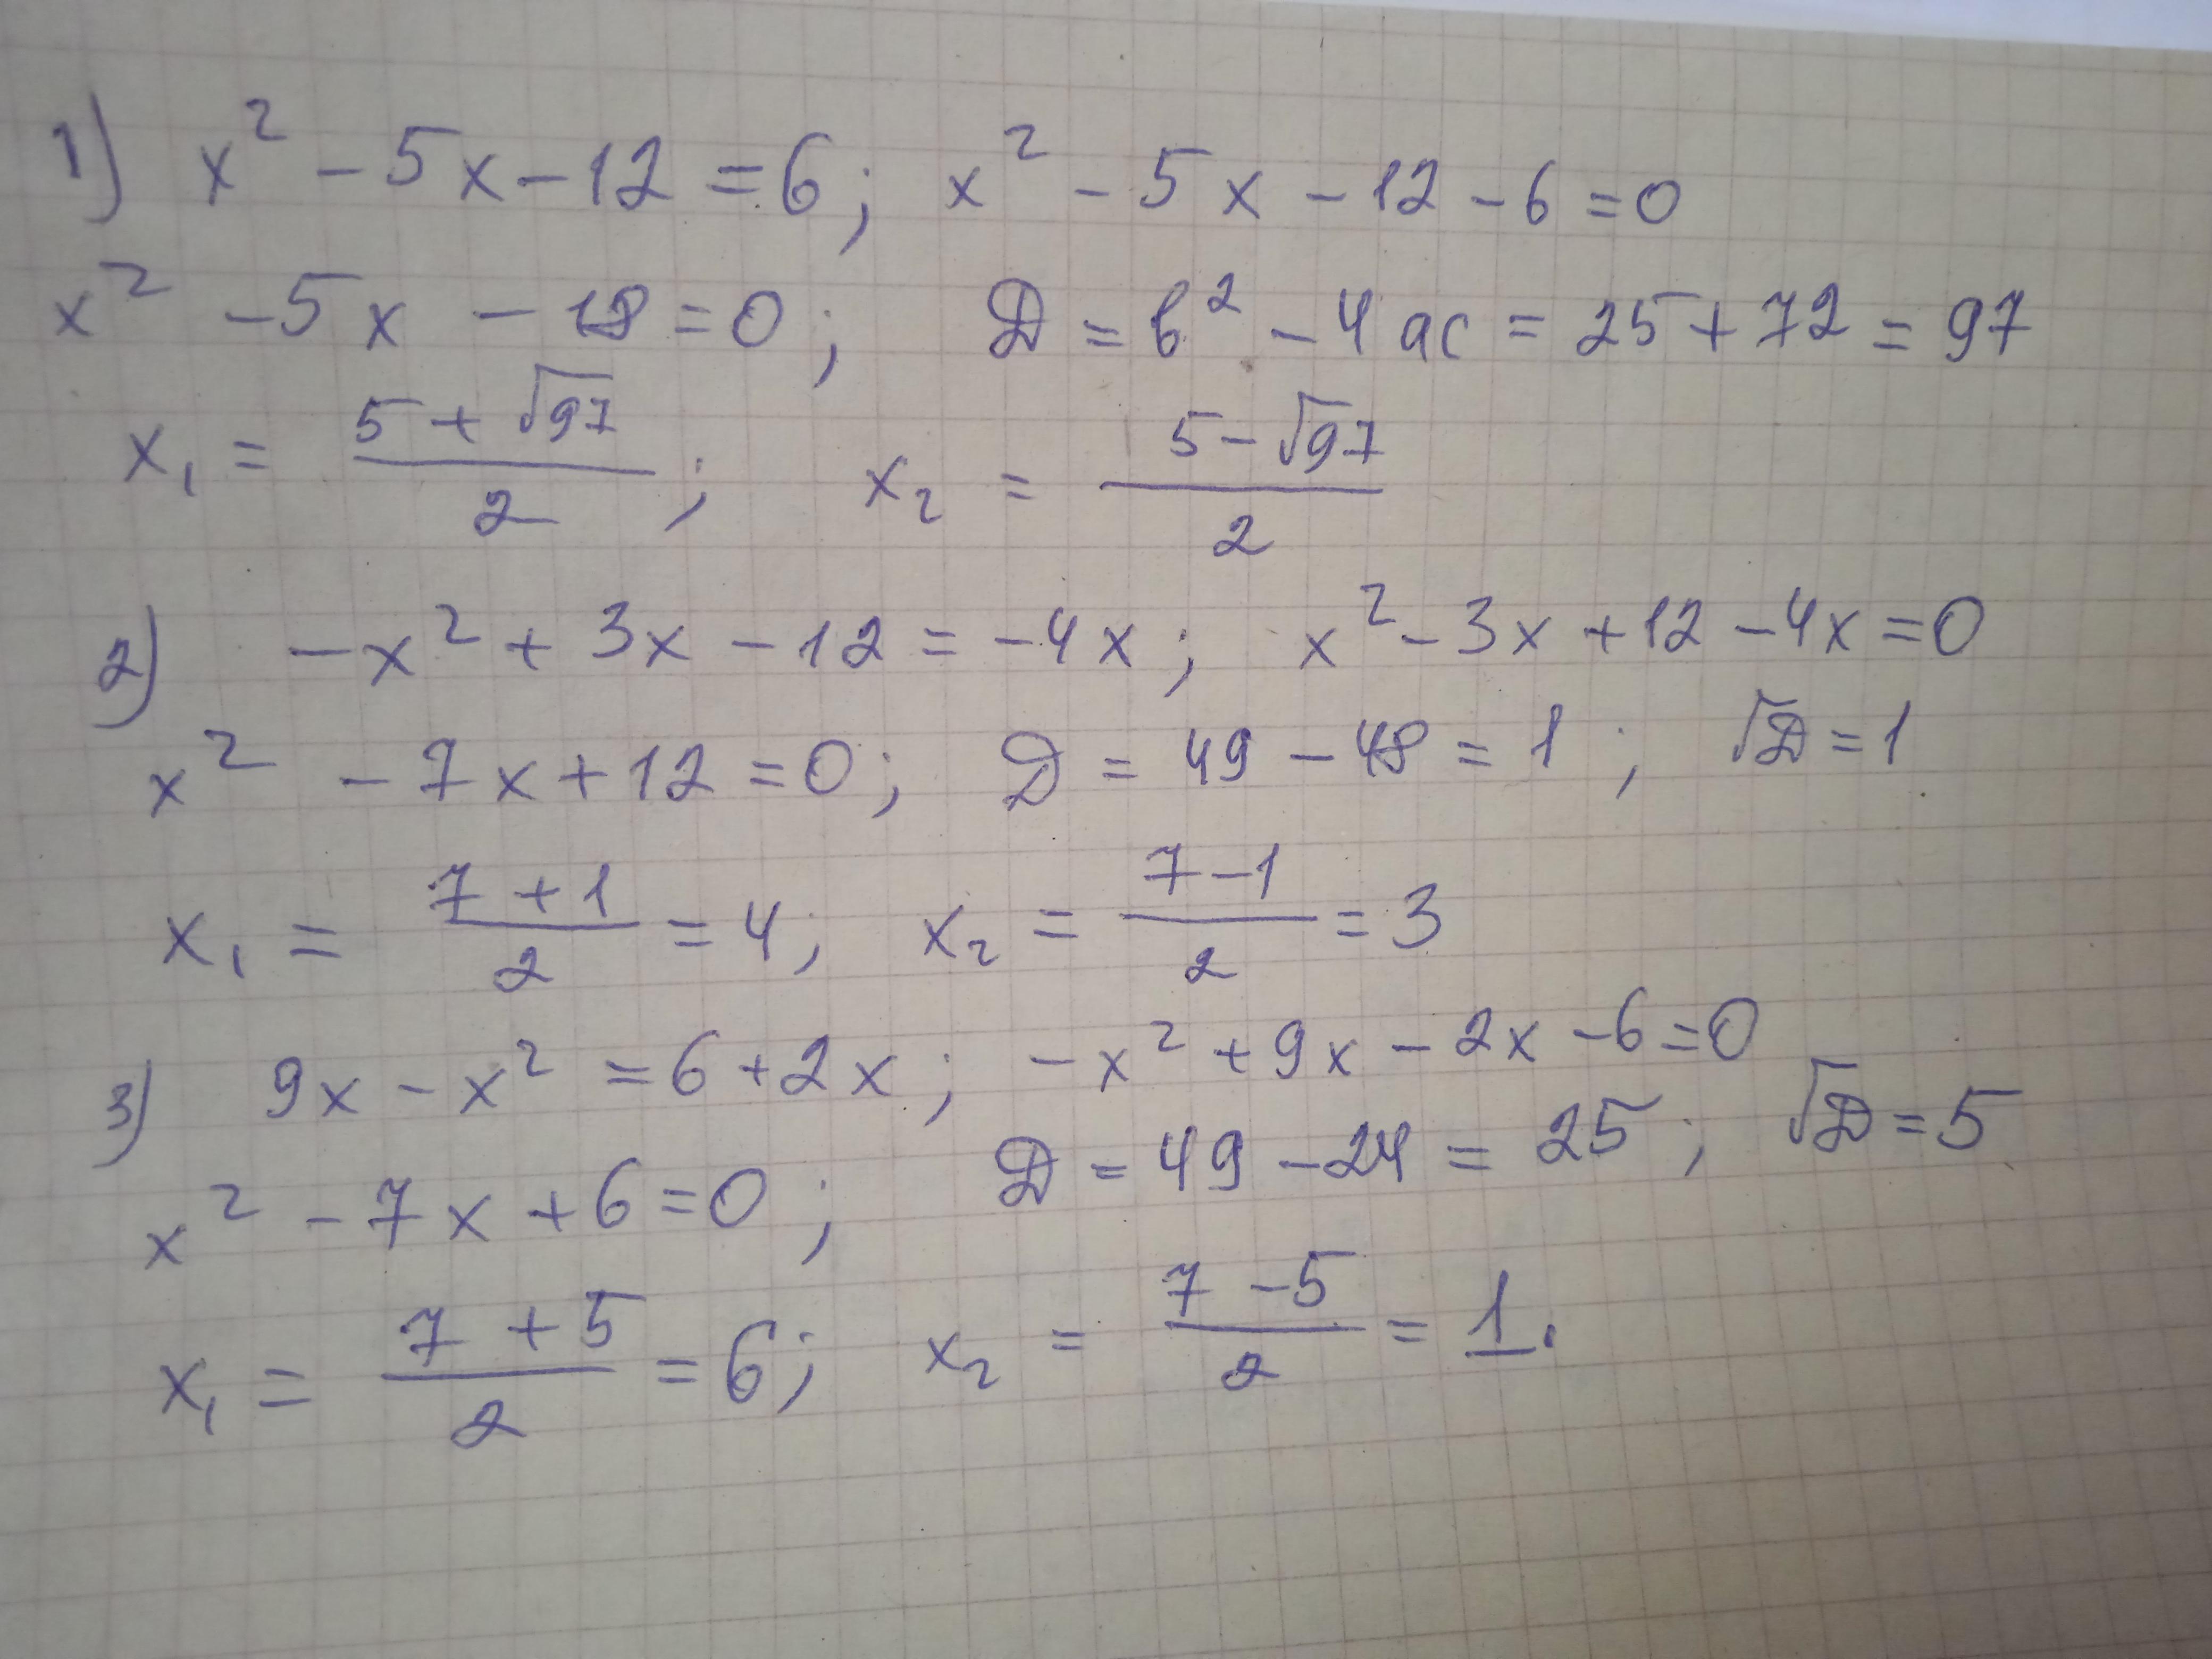 1) x² - 5x - 12 = 6; x² - 5x - 12 - 6 = 0
x² - 5x - 18 = 0; D = b² - 4ac = 25 + 72 = 97
x₁ = (5 + √97)/2; x₂ = (5 - √97)/2
2) -x² + 3x - 12 = -4x; x² - 3x + 12 - 4x = 0
x² - 7x + 12 = 0; D = 49 - 48 = 1; √D = 1
x₁ = (7 + 1)/2 = 4; x₂ = (7 - 1)/2 = 3
3) 9x - x² = 6 + 2x; -x² + 9x - 2x - 6 = 0
x² - 7x + 6 = 0; D = 49 - 24 = 25; √D = 5
x₁ = (7 + 5)/2 = 6; x₂ = (7 - 5)/2 = 1.